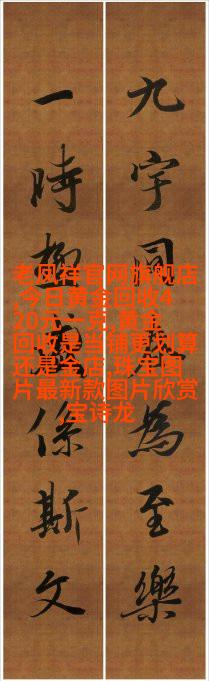 九宇同為至樂
一時係斯文
老凤祥官网旗舰店
,今日黄金回收4
20元一克,黄金
回收是当铺更划算
还是金店,珠宝图
片最新款图片欣赏
_宝诗龙